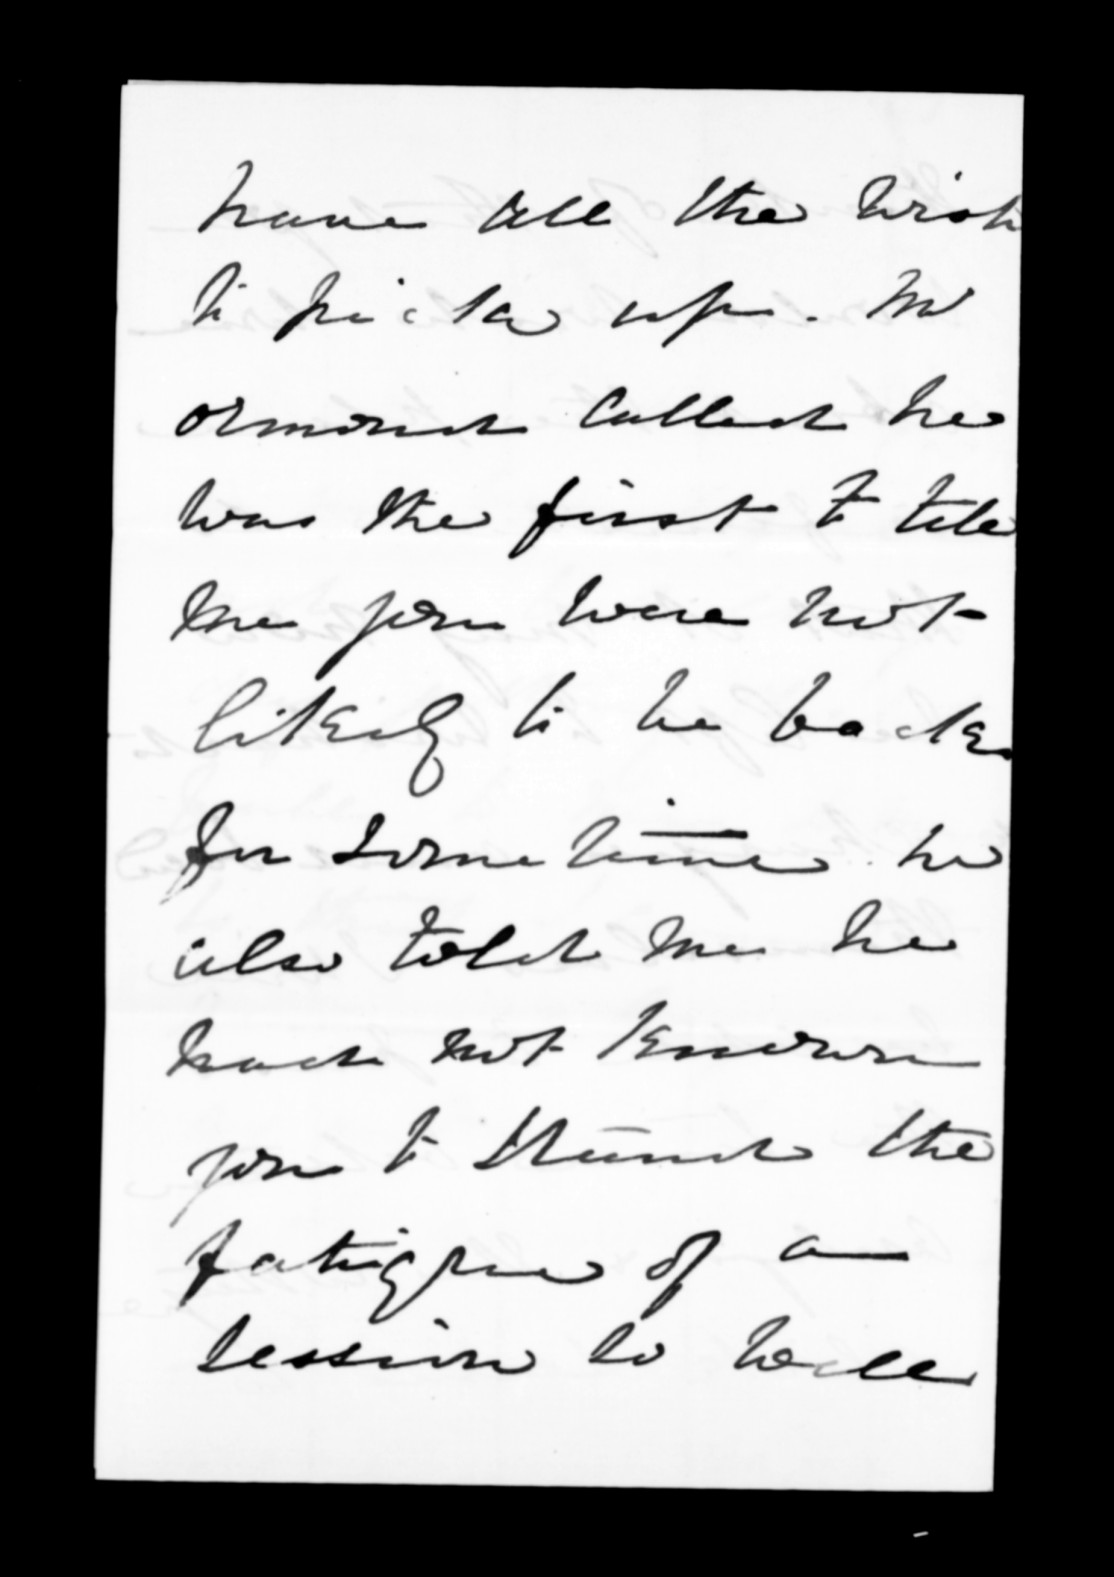 have all the wish
to pick up. Mr
Ormond called he
was the first to tell
me you were not
likely to be back
for some time he
also told me he
had not known
you to stand the
fatigue of a
session so well